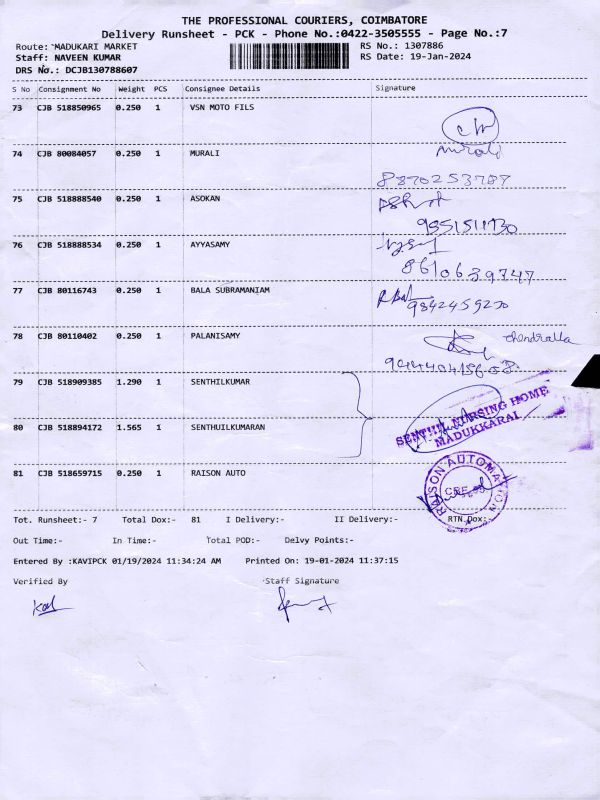 THE PROFESSIONAL COURIERS, COIMBATORE
Delivery Runsheet - PCK - Phone No.:0422-3505555 - Page No.:7
Route: MADUKARI MARKET RS No.: 1307886
Staff: NAVEEN KUMAR RS Date: 19-Jan-2024
DRS No.: DCJB130788607
S No Consignment No Weight PCS Consignee Details Signature
73 CJB 518850965 0.250 1 VSN MOTO FILS
74 CJB 80084057 0.250 1 MURALI murali
8870253787
75 CJB 518888540 0.250 1 ASOKAN
76 CJB 518888534 0.250 1 AYYASAMY
8610639747
77 CJB 80116743 0.250 1 BALA SUBRAMANIAM
9842459230
78 CJB 80110402 0.250 1 PALANISAMY
79 CJB 518909385 1.290 1 SENTHILKUMAR
SENTHIL NURSING HOME
MADUKKARAI
80 CJB 518894172 1.565 1 SENTHUILKUMARAN
81 CJB 518659715 0.250 1 RAISON AUTO
RAISON AUTOMATION
Tot. Runsheet:- 7 Total Dox:- 81 I Delivery:- II Delivery:- RTN Dox:-
Out Time:- In Time:- Total POD:- Delvy Points:-
Entered By :KAVIPCK 01/19/2024 11:34:24 AM Printed On: 19-01-2024 11:37:15
Verified By Staff Signature